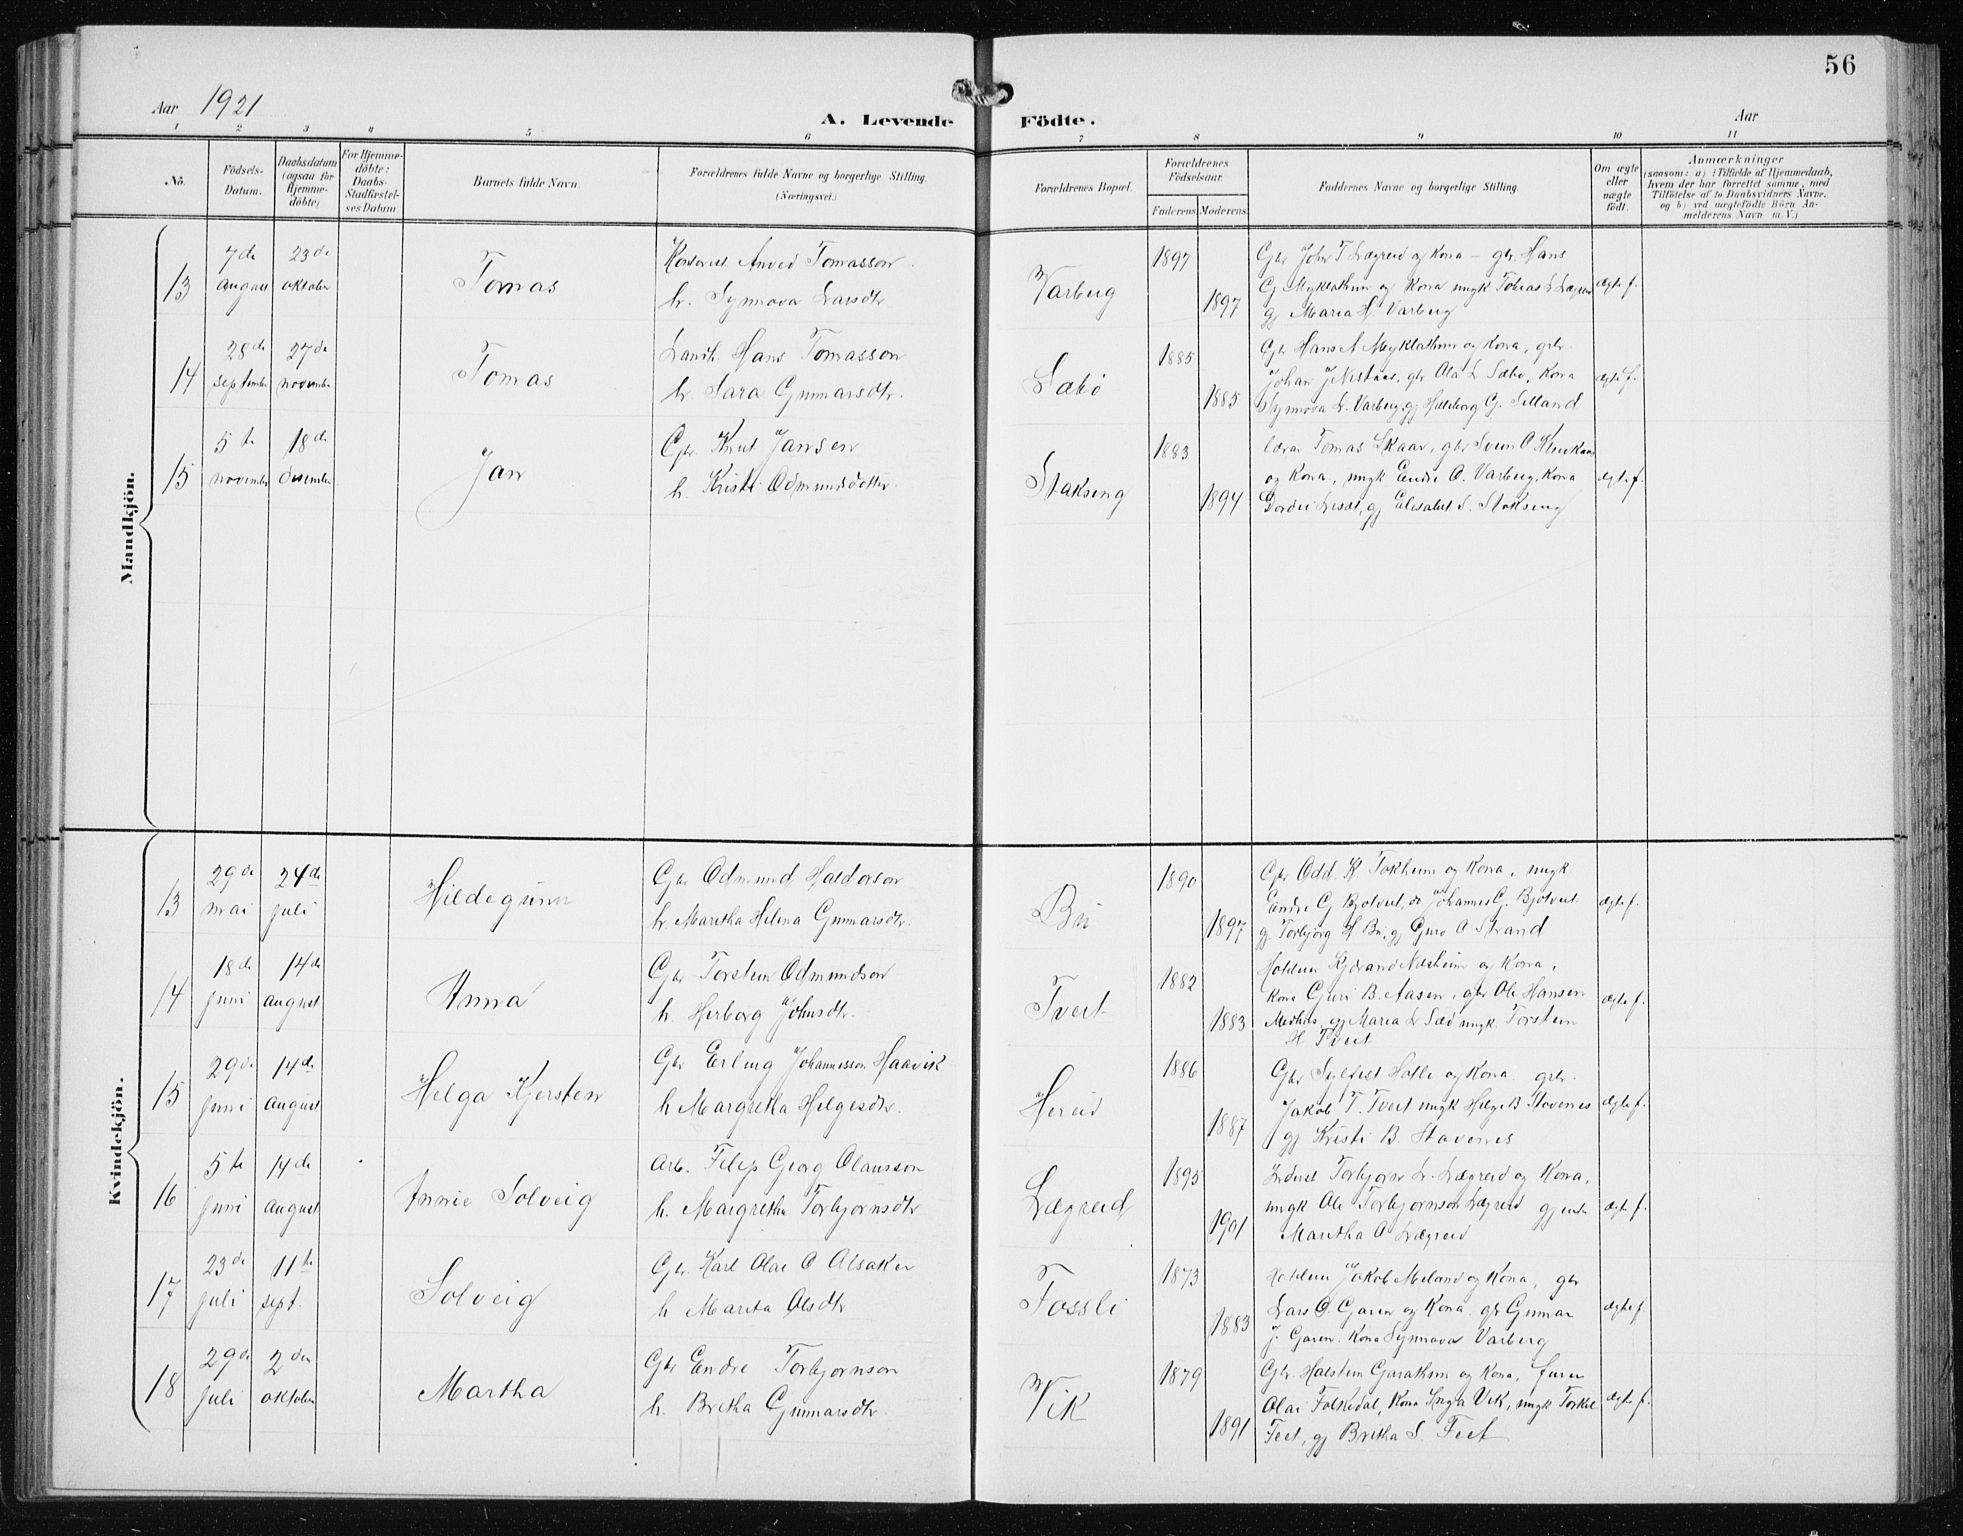 56
Aar 1921
A. Levende Födte.
Aar
1 2 3 4 5 6 7 8 9 10 11
No.
Födsels-Datum.
Daabsdatum (ogsaa för Hjemme-döbte)
For Hjemme-döbte: Daabs-Stadfestel-ses Datum
Barnets fulde Navn.
Forældrenes fulde Navne og borgerlige Stilling. (Næringsvei.)
Forældrenes Bopæl.
Forældrenes Födselsaar.
Faderens Moderens
Faddernes Navne og borgerlige Stilling.
Om ægte eller uægte födt.
Anmærkninger
(saasom: a) i Tilfælde af Hjemmedaab,
hvem der har forrettet samme, med
Tilföielse af to Daabsvidners Navne.
og b) ved uægtefödte Börn An-
melderens Navn m. V.)
Mandkjön.
13 7de august 23de oktober
Tomas
Arved Tomasson
h. Synnova Larsdtr
Varberg
1897
1897
Gbr John T Lægreid og Kona – gbr. Hans
G Myklathun og Kona ungk Tomas L Lægreid
gj Maria H. Varberg
ægte f.
14 28de september 27de november
Tomas
Landh. Hans Tomasson
h. Sara Gunnarsdtr.
Sæbö
1885
1885
Gbr Hans A Myklathun og Kona, gbr.
Johan J Nestaas, gbr Ola L Sæbö, Kona
Synnova L. Varberg, gj Hæleborg G. Selland
ægte f.
15 5te november 18de desember
Jan
Gbr. Knut Jansen
h. Kristi Odmundsdotter.
Stakseng
1883
1894
lærar Tomas Skaar, gbr Svein O
og Kona, ungk Endre O. Varberg, Kona
gj Elisabet S. Stakseng
ægte f.
Kvindekjön.
13 29de mai 24de juli
Hildegunn
Gbr Odmund Haldorson
h. Maretha Helena Gunnarsdtr.
Bu
1890
1897
Gbr Odd. K Tokheim og Kona, ungk
Endre G Bjotveit, do Johannes G. Bjotveit
gj. Torbjörg H Bu, gj Guro O Strand
ægte f.
14 18de juni 14de august
Anna
Gbr Torstein Odmundson
h. Herborg Johnsdtr.
Tveit
1882
1883
Kjerand Næsheim og Kona,
Kona Guri B. Aasen, gbr Ole Hansen
Medhus, gj Maria L Sæd ungk. Torstein
H Tveit
ægte f.
15 29de juni 14de august
Helga Kjersten
Gbr Erling Johannesson Haavik
h Margretha Helgesdtr.
Hereid
1886
1887
Gbr Sylfest Holle og Kona gbr.
Jakob T. Tveit ungk Helge B Stavenes
gj Kristi B. Stavenes
ægte f.
16 5te juni 14de august
Annie Solveig
Arb. Filip Georg Olausson
h. Margretha Torbjornsdtr
Lægreid
1895
1901
Torbjorn L. Lægreid og Kona,
ungk Ole Torbjornson Lægreid gjente
Maretha O Lægreid
ægte f.
17 23de juli 11te sept.
Solveig
Gbr. Karl Olai O Alsaker
h Marita Olsdtr
Fossli
1873
1883
Jakob Meland og Kona, gbr
Lars O. Garen og Kona. gbr Gunnar
J. Garen. Kona Synnova Varberg
ægte f.
18 29de juli 2den oktober
Martha
Gbr Endre Torbjornson
h. Bretha Gunnarsdtr.
Vik
1879
1891
Gbr. Halstein Garathun og Kona,
Olai Folkedal, Kona Inga Vik, ungk Torkel
Feet, gj Bretha S. Feet
ægte f.